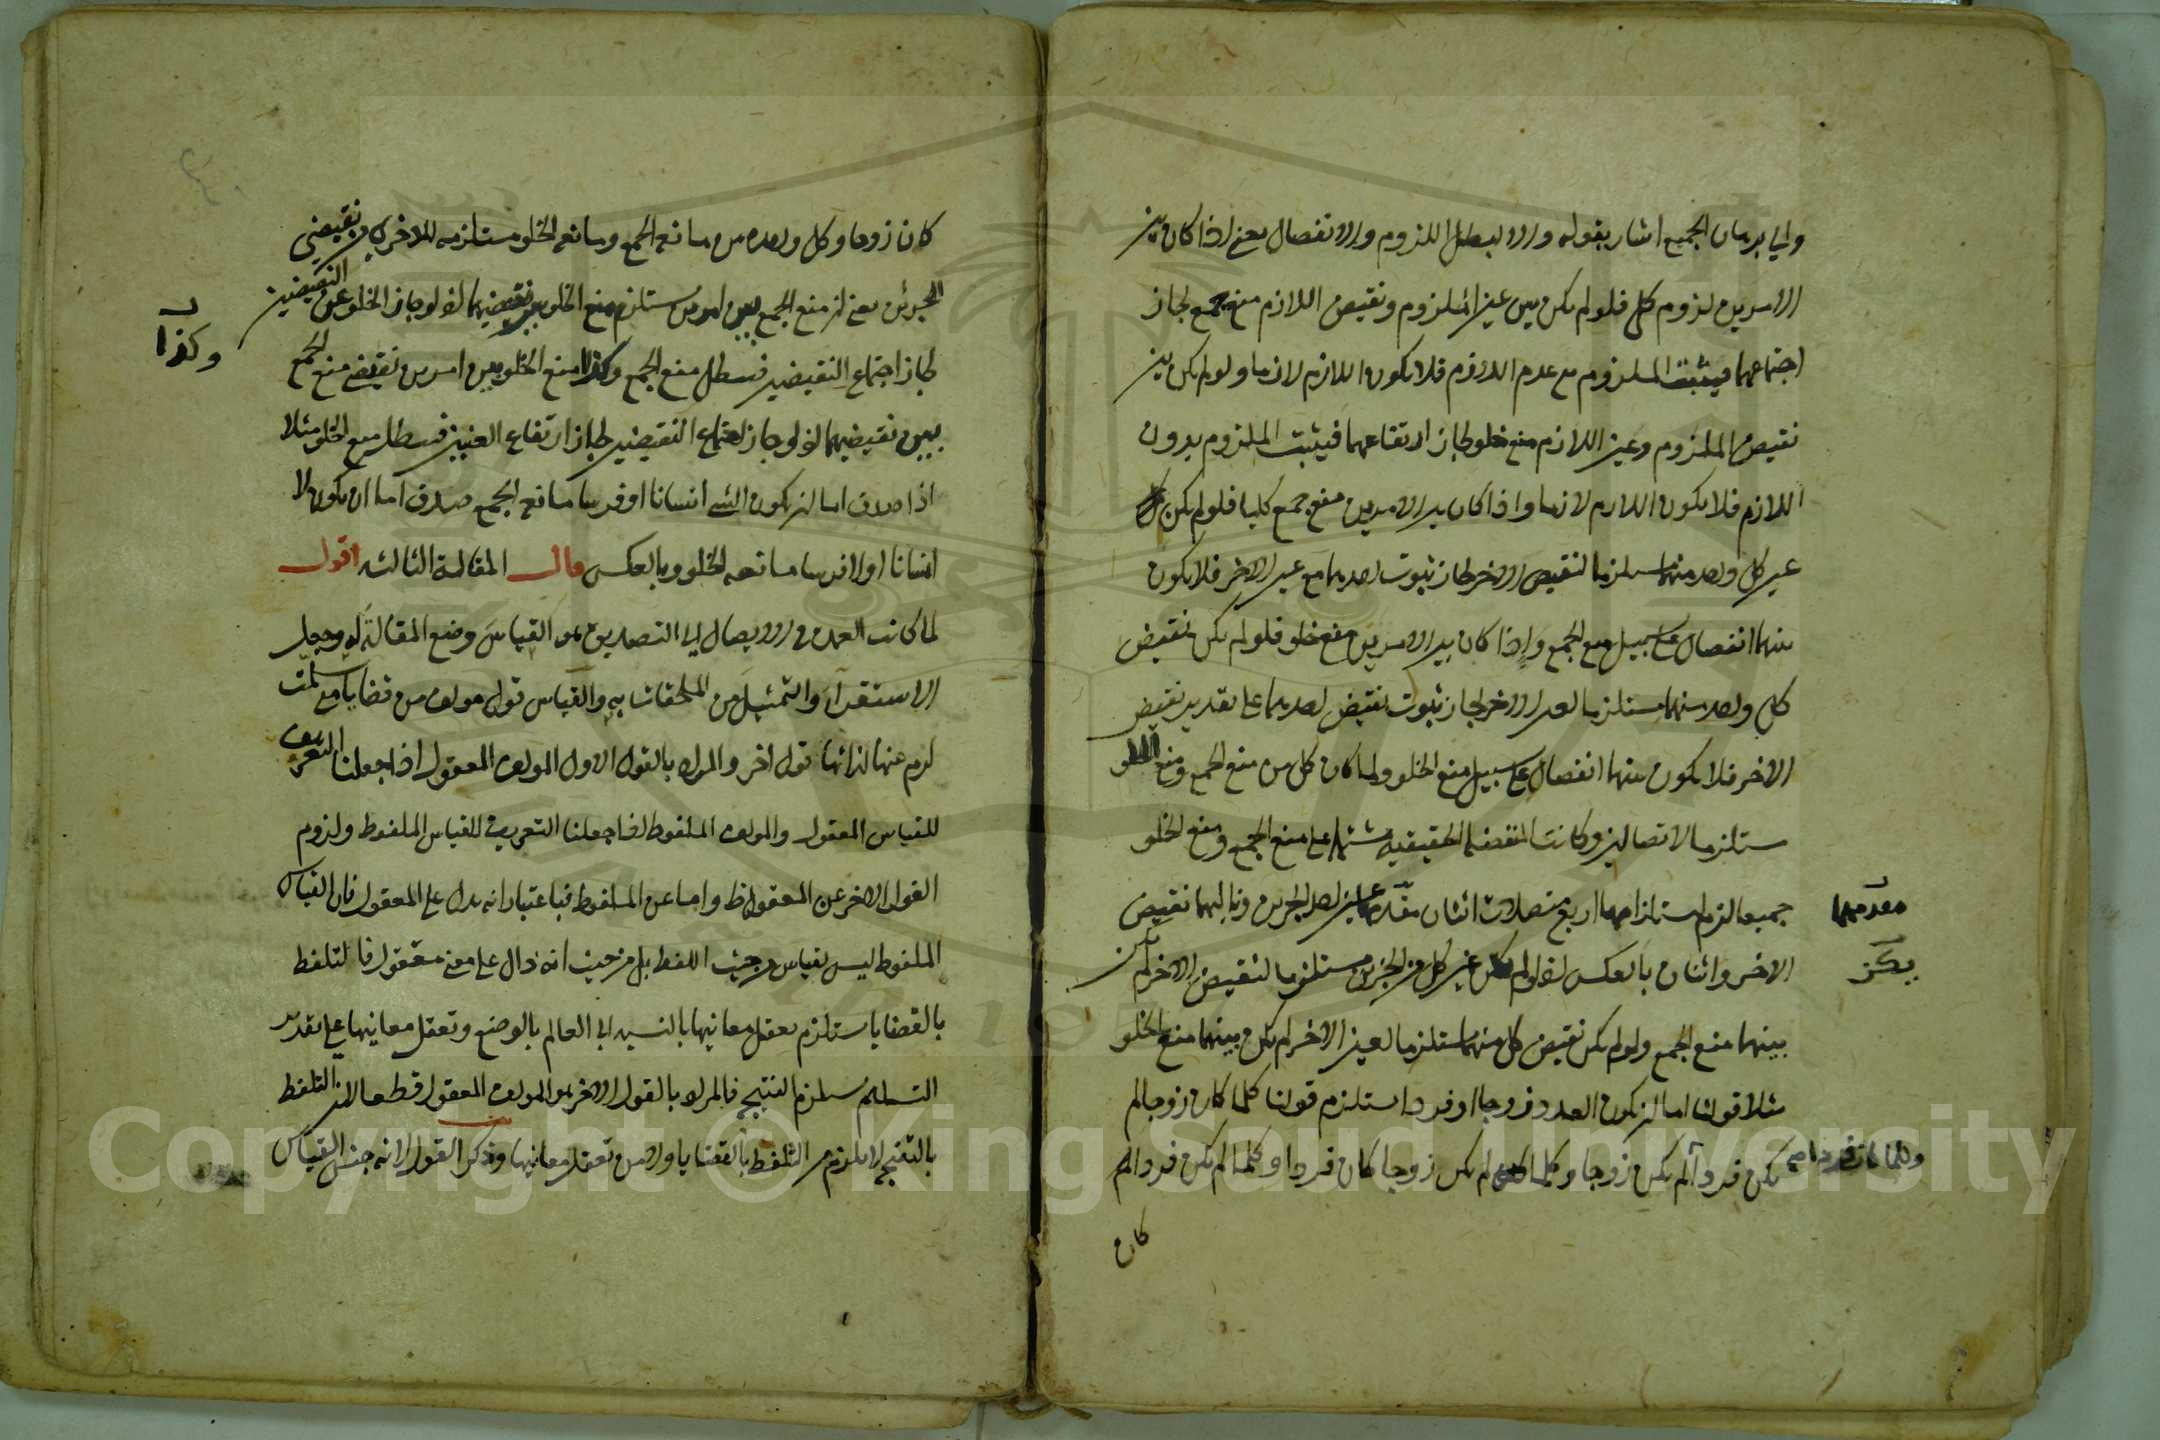 والى برهان الجميع اشار بقوله والا لبطل اللزوم والانفصال يعنى اذا كان بين
الامرين لزوم كلى فلو لم يكن بين عين الملزوم ونقيض اللازم منع جمع لجاز
اجتماعهما فيثبت الملزوم مع عدم اللازم فلا يكون اللازم لازما ولو لم يكن بين
نقيض الملزوم وعين اللازم منع خلو لجاز ارتفاعهما فيثبت الملزوم بدون
اللازم فلا يكون اللازم لازما واذا كان بين الامرين منع جمع كليا فلو لم يكن
عين كل واحد منهما مستلزما لنقيض الاخر لجاز ثبوت احدهما مع عين الاخر فلا يكون
بينهما انفصال على سبيل منع الجمع واذا كان بين الامرين منع خلو فلو لم يكن نقيض
كل واحد منهما مستلزما لعين الاخر لجاز ثبوت نقيض احدهما على تقدير نقيض
الاخر فلا يكون بينهما انفصال على سبيل منع الخلو ولما كان كل من منع الجمع ومنع الخلو
مستلزما لاتصالين وكانت المنفصلة الحقيقية مشتملة على منع الجمع ومنع الخلو
جميعا لزم استلزامها اربع متصلات اثنان مقدمهما عين احد الجزئين وتاليهما نقيض
مقدمهما
الاخر واثنان بالعكس لانه لو لم يكن عين كل من الجزئين مستلزما لنقيض الاخر لم يكن
يكن
بينهما منع الجمع ولو لم يكن نقيض كل منهما مستلزما لعين الاخر لم يكن بينهما منع الخلو
مثلا قولنا اما ان يكون العدد زوجا او فردا استلزم قولنا كلما كان زوجا لم
يكن فردا لم يكن زوجا وكلما لم يكن زوجا كان فردا وكلما لم يكن فردا
وكلما كان فردا صح
كان
كان زوجا وكل واحدة من مانعة الجمع ومانعة الخلو مستلزمة للاخرى من نقيضى
الجزئين يعنى ان منع الجمع بين امرين يستلزم منع الخلو بين نقيضيهما اذ لو جاز الخلو عن النقيضين
لجاز اجتماع النقيضين فيبطل منع الجمع وكذا منع الخلو بين امرين نقيض منع الجمع
وكذا
بين نقيضيهما اذ لو جاز اجتماع النقيضين لجاز ارتفاع العينين فيبطل منع الخلو مثلا
اذا صدق اما ان يكون الشىء انسانا او فرسا مانعة الجمع صدق اما ان يكون لا
انسانا او لا فرسا مانعة الخلو وبالعكس قال المقالة الثالثه اقول
لما كانت العمدة فى الايصال الى التصديق هو القياس وضع المقالة له وجعل
الاستقراء والتمثيل من الملحقات به والقياس قول مولف من قضايا متى سلمت
لزم عنها لذاتها قول اخر والمراد بالقول الاول المولف المعقول اذا جعلنا التعريف
للقياس المعقول والمولف الملفوظ اذا جعلنا التعريف للقياس الملفوظ ولزوم
القول الاخر عن المعقول ظ واما عن الملفوظ فباعتبار انه يدل على المعقول فان القياس
الملفوظ ليس بقياس من حيث اللفظ بل من حيث انه دال على معنى معقول فالتلفظ
بالقضايا يستلزم تعقل معانيها بالنسبة الى العالم بالوضع وتعقل معانيها على تقدير
التسليم يستلزم النتيجة فالمراد بالقول الاخر هو المولف المعقول قطعا لان التلفظ
بالنتيجة لا يلزم من التلفظ بالقضايا ولا من تعقل معانيها وذكر القول لانه جنس القياس